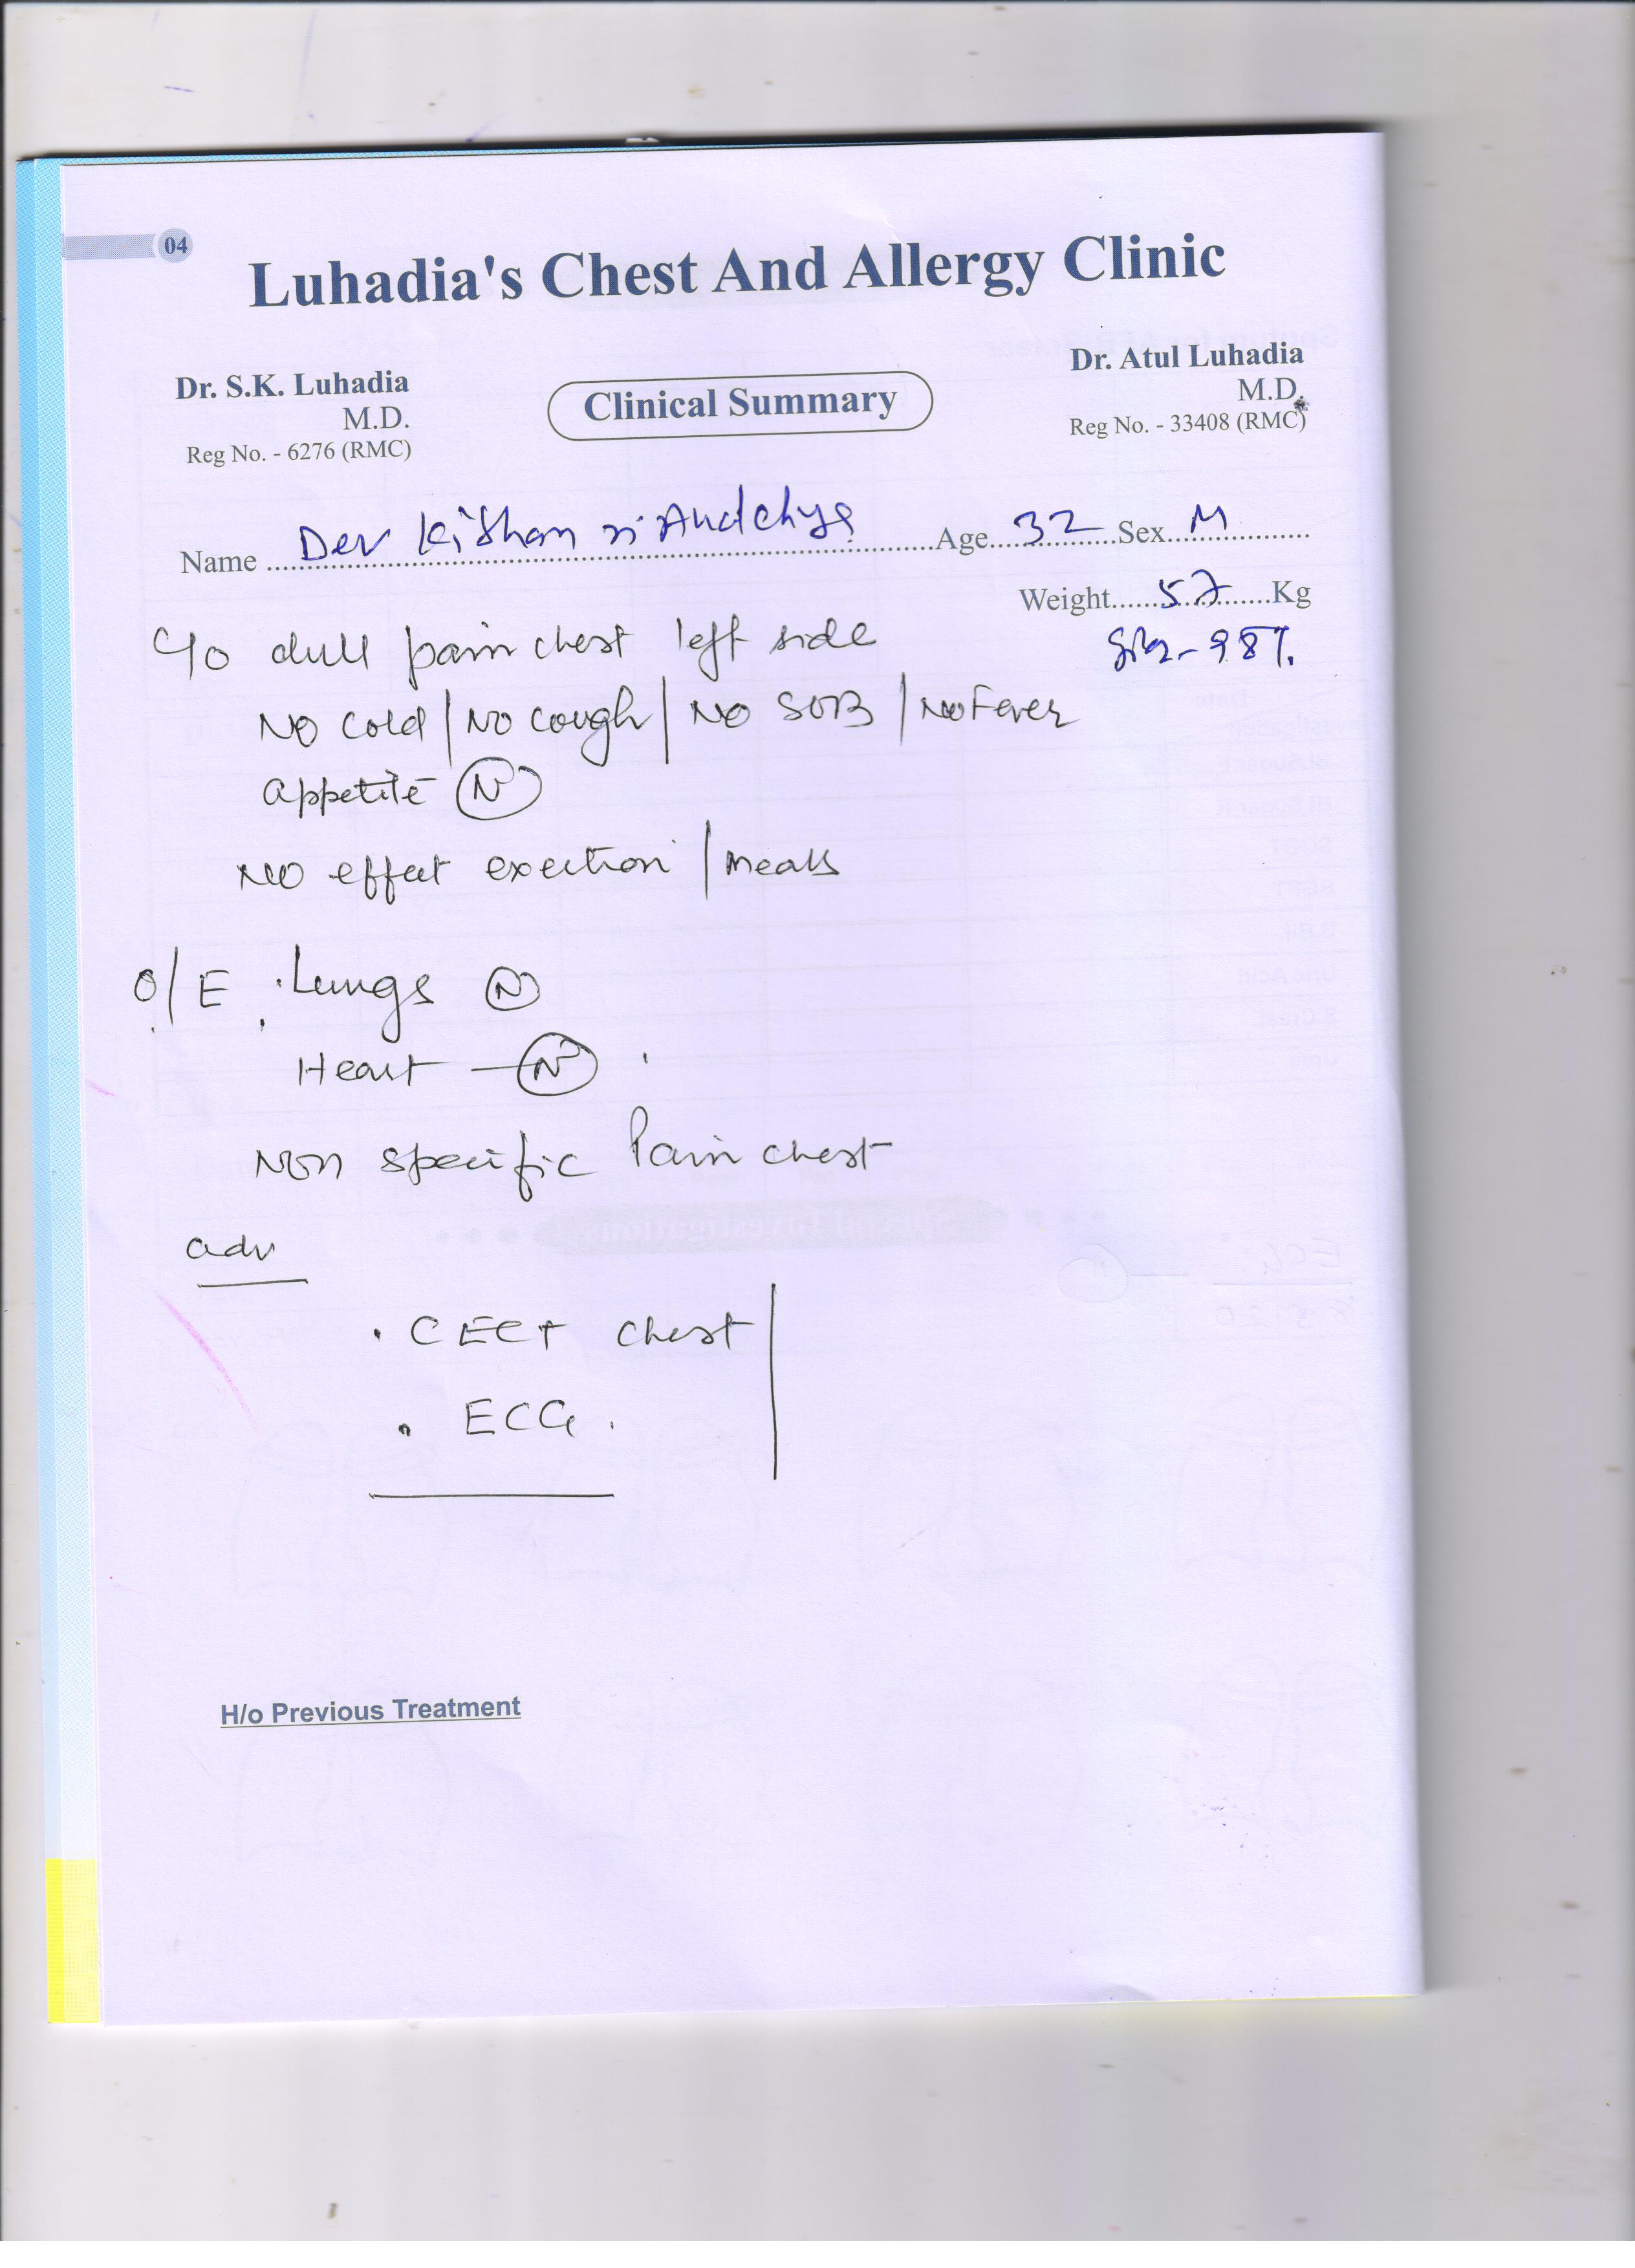 04
Luhadia's Chest And Allergy Clinic
Dr. S.K. Luhadia
M.D.
Reg No. - 6276 (RMC)
Clinical Summary
Dr. Atul Luhadia
M.D.
Reg No. - 33408 (RMC)
Name Dev Kishan Age 32 Sex M
Weight 57 Kg
98%
C/o dull pain chest left side
No cold / No cough / No SOB / No Fever
appetite N
No effect exertion / meals
O/E Lungs N
Heart - N
Non specific Pain chest
adv
. CECT chest
. ECG .
H/o Previous Treatment